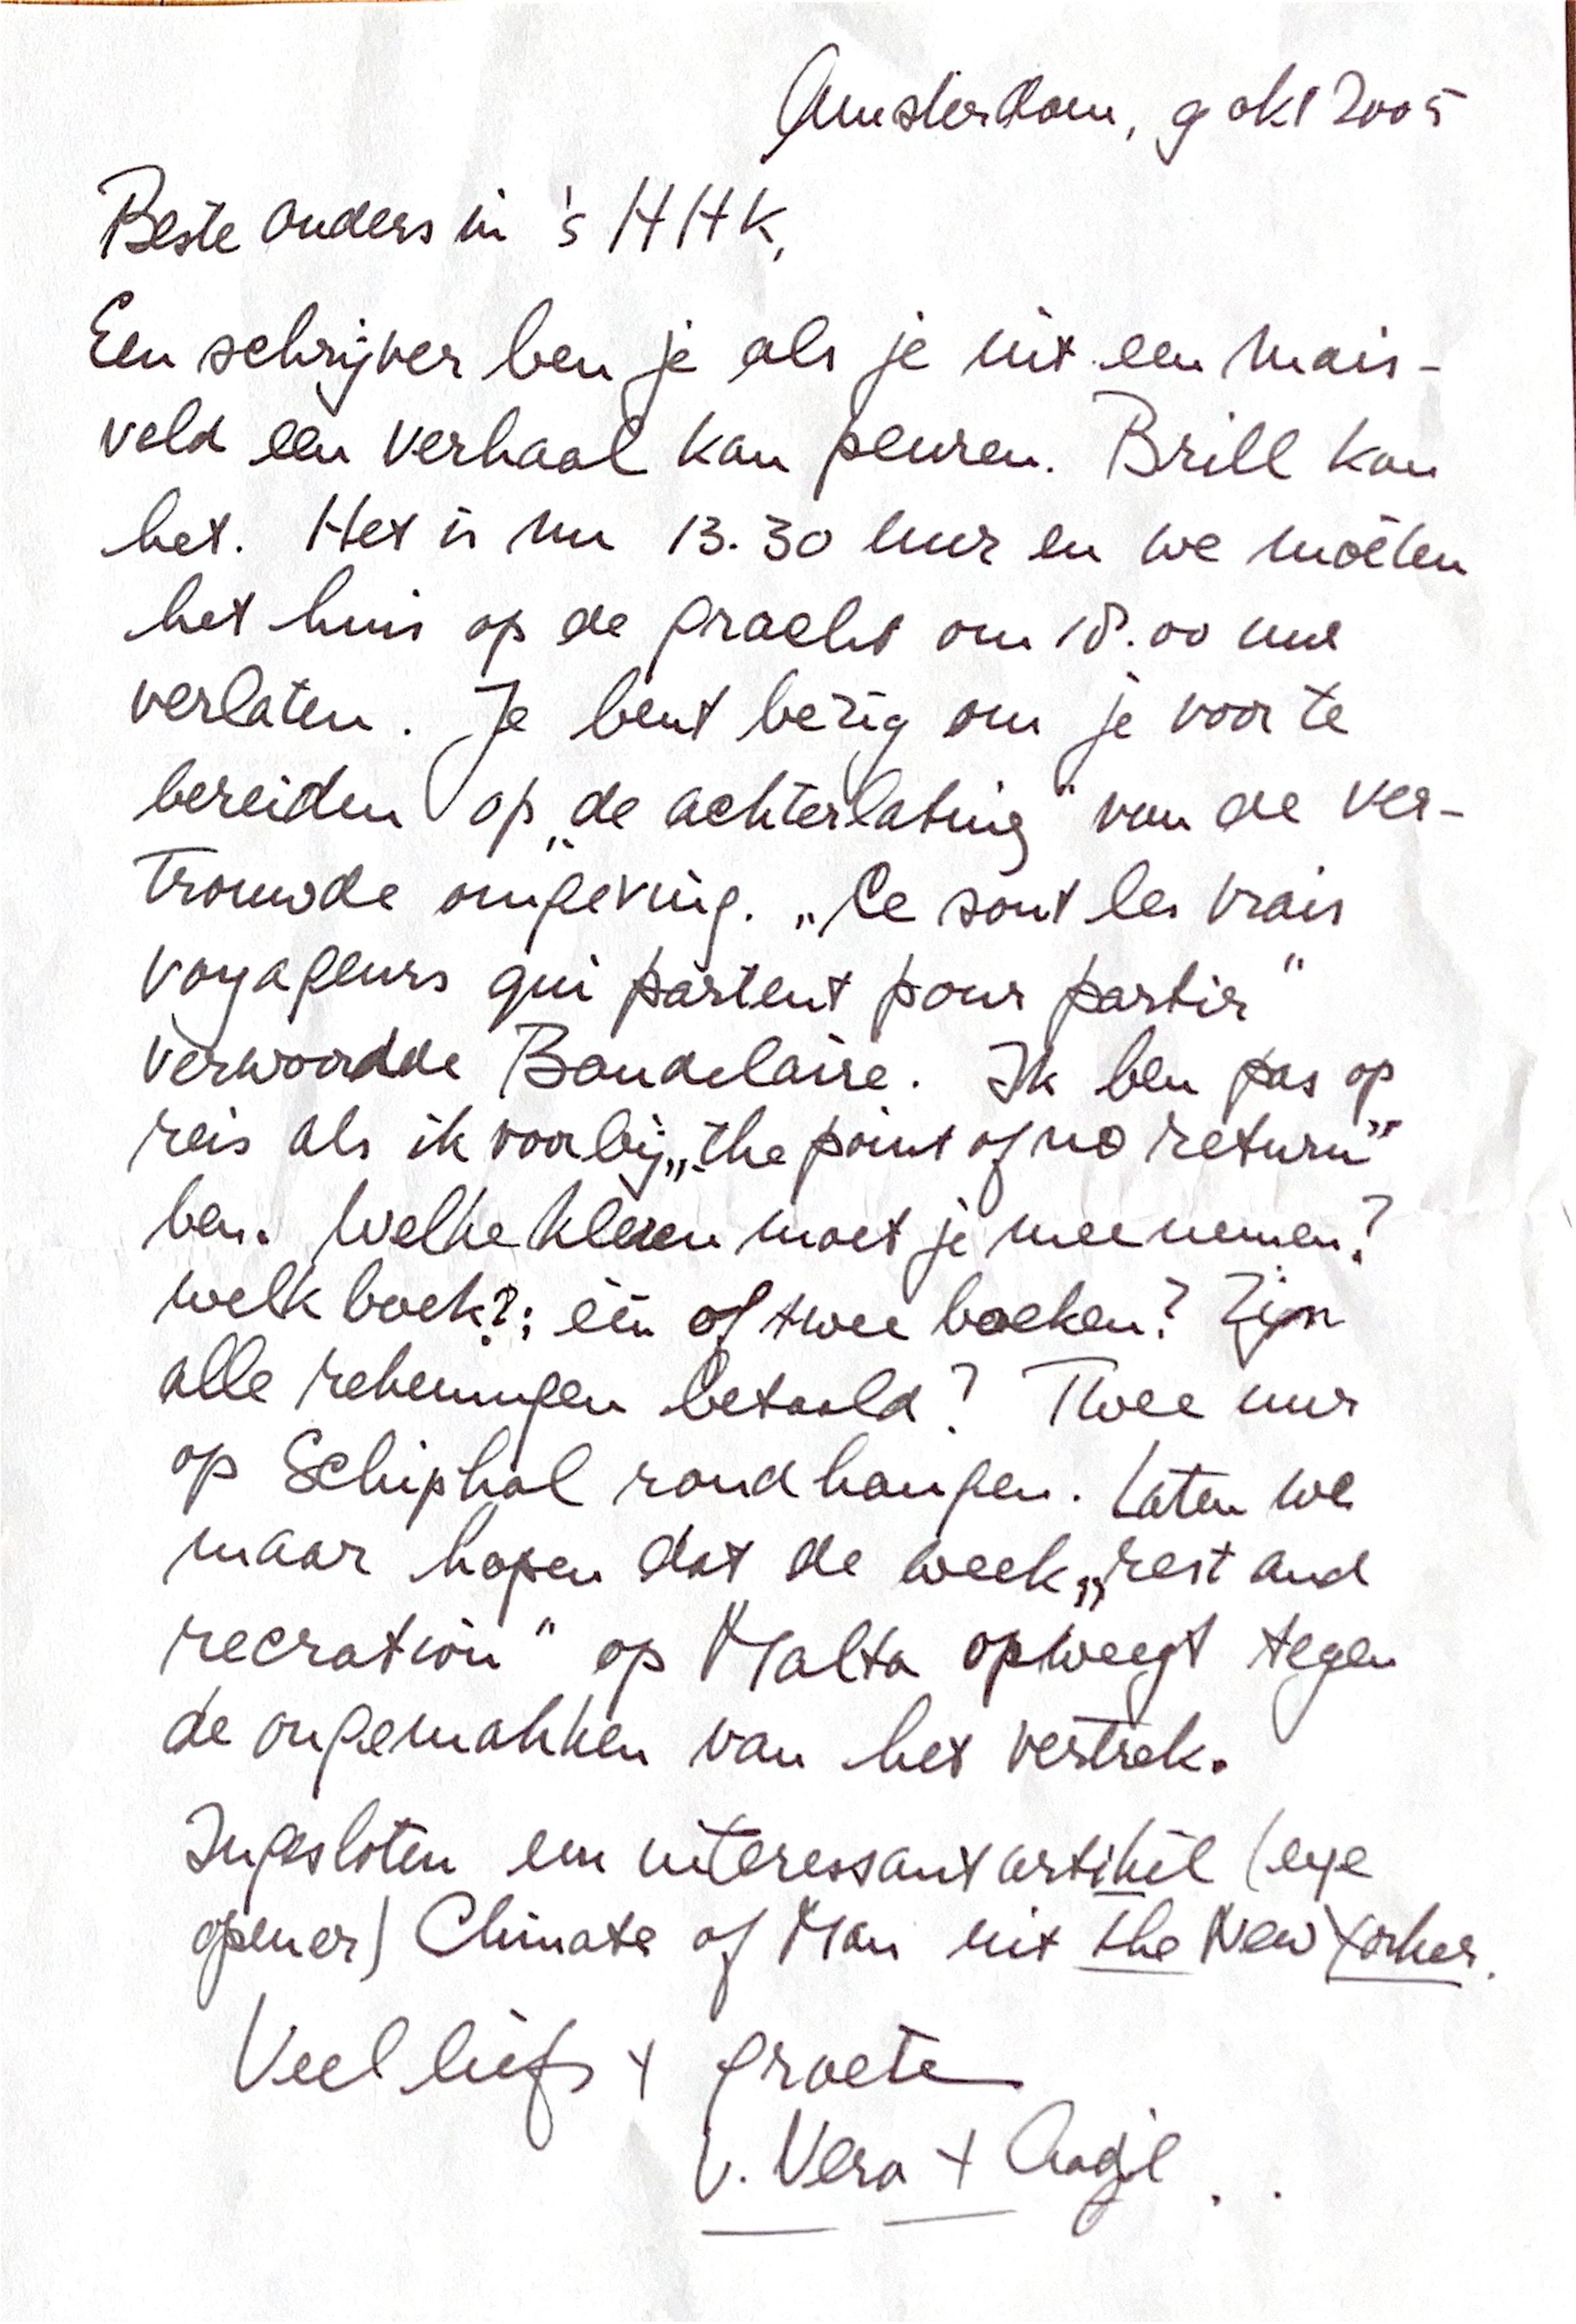 Amsterdam, 9 okt 2005
Beste ouders in 's HHK,
Een schrijver ben je als je uit een mais-
veld een verhaal kan peuren. Brill kan
het. Het is nu 13.30 uur en we moeten
het huis op de gracht om 18.00 uur
verlaten. Je bent bezig om je voor te
bereiden op „de achterlating" van de ver-
trouwde omgeving. „Ce sont les vrais
voyageurs qui partent pour partir"
verwoordde Baudelaire. Ik ben pas op
reis als ik voorbij „the point of no return"
ben. Welke kleren moet je meenemen?
welk boek?; één of twee boeken? Zijn
alle rekeningen betaald? Twee uur
op Schiphol rondhangen. Laten we
maar hopen dat de week „rest and
recration" op Malta opweegt tegen
de ongemakken van het vertrek.
Ingesloten een interessant artikel (eye
opener) Climate of Man uit The New Yorker.
Veel liefs + groete
v. Vera +